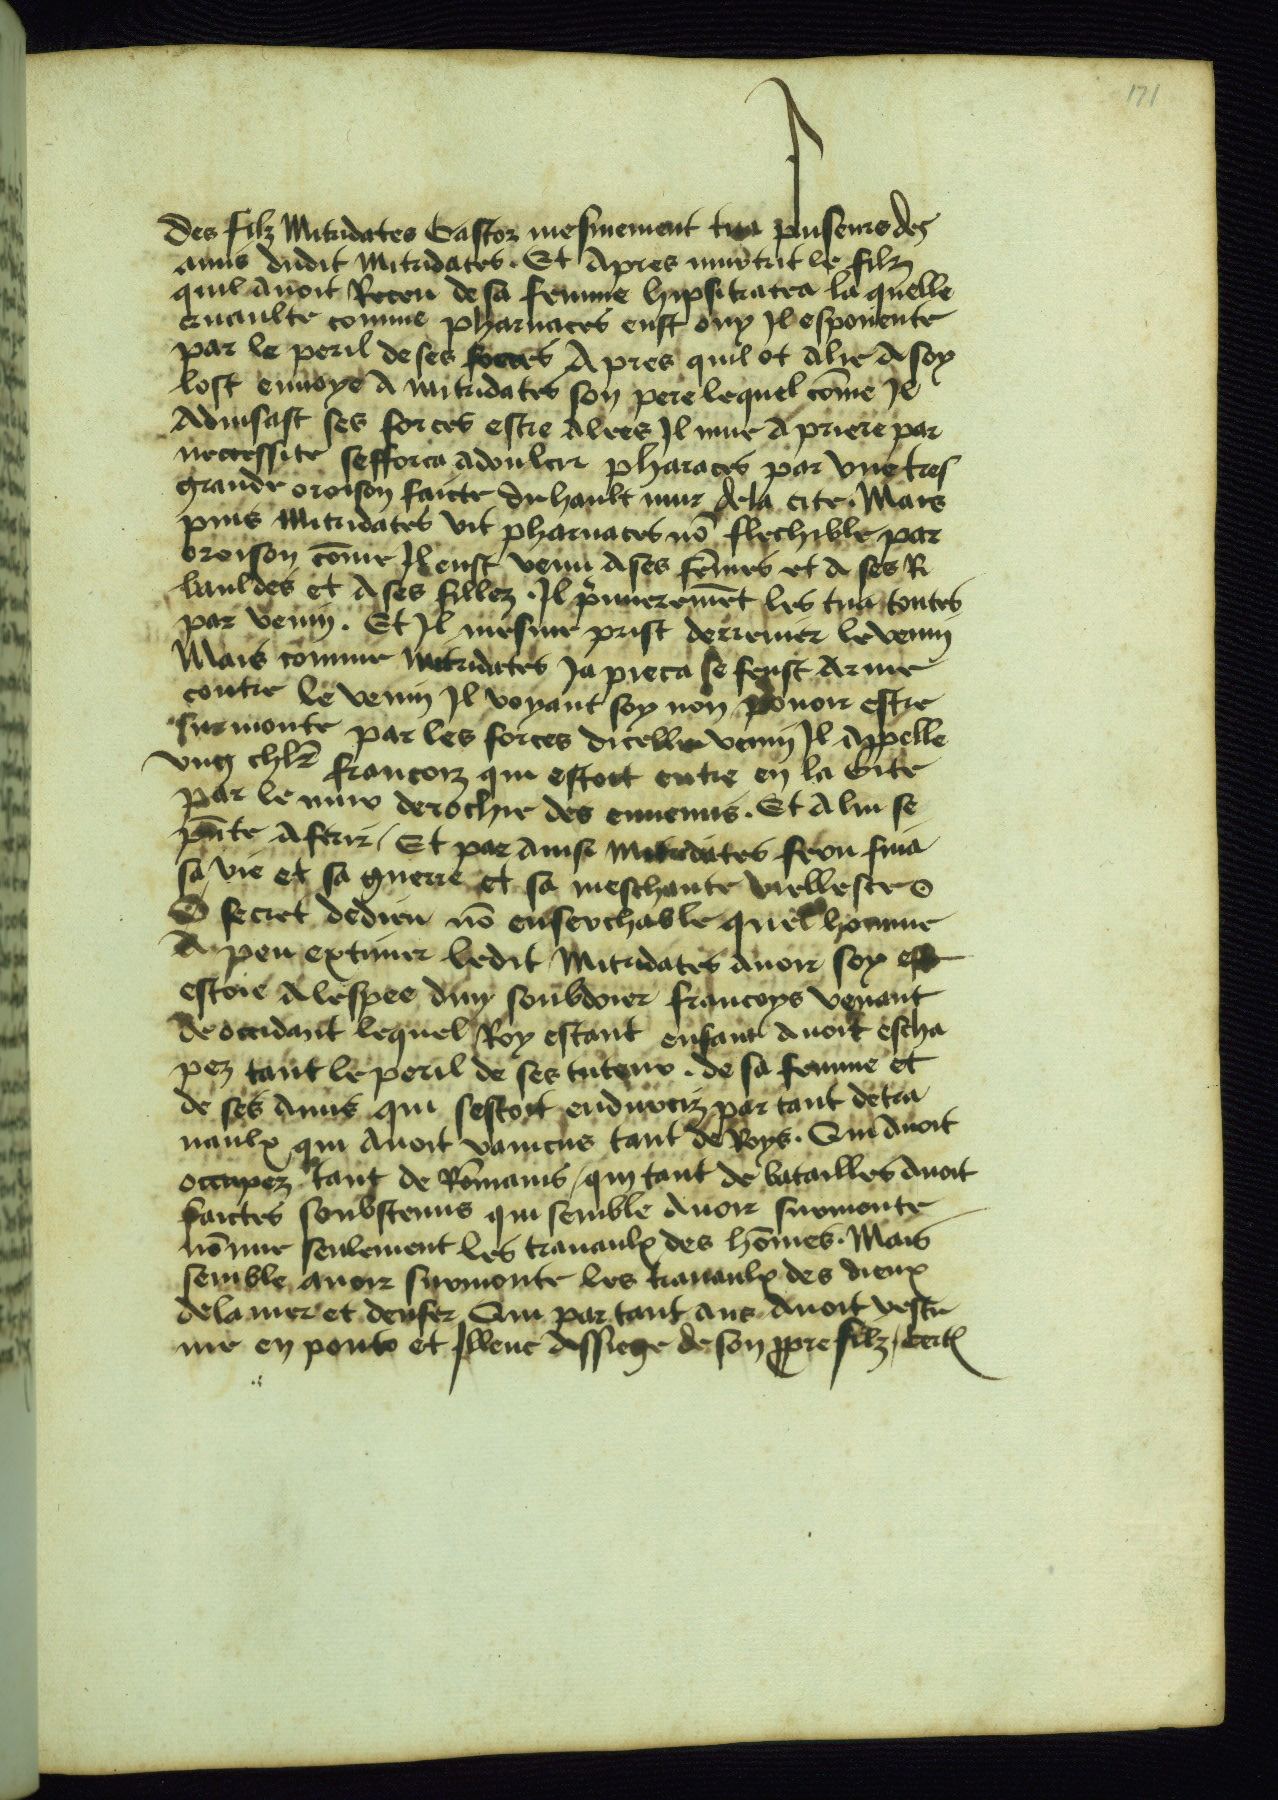 171
Des filz Mitridates Castor mesmement tua pluseurs des
amis dudit Mitridates. Et Apres murtrit le filz
quil avoit Receu de sa femme hipsitratea la quelle
cruaulte comme pharnaces eust ouy Il esponente
par le peril de ses freres Apres quil ot alie A soy
lost envoye A Mitridates son pere lequel cōme Il
Advisast ses forces estre alees Il mue A priere par
necessite sefforca adoulcir pharaces par une tres
grande oroison faicte du hault mur de la cite. Mais
puis Mitridates vit pharnaces nō flechible par
oroison cōme Il eust venu A ses fēmes et A ses R
bauldes et A ses fillez. Il p̄mieremēt les tua toutes
par venin. Et Il mesme prist derrenier le venin
Mais comme Mitridates Ja pieca se feust Arme
contre le venin Il voyant soy non povoir estre
surmonte par les forces dicellui venin Il Appelle
ung chlr̄ francoiz qui estoit entre en la Cite
par le mur derochie des ennemis. Et A lui se
pn̄te A ferir / Et par Ainsi Mitridates fery fina
sa vie et sa guerre et sa meschante viellesce O
O secret de dieu nō enserchable quel homme
A peu extimer ledit Mitridates avoir soy
estoie A lespee duny souldoier francoys venant
de occidant lequel Roy estant enfant Avoit escha
pez tant le peril de ses tuteurs . de sa femme et
de ses Amis qui sestoit endurciz par tant de tra
vaulx qui Avoit vaincus tant de Roys. Qui Avoit
occupez tant de Rōmains / qui tant de batailles Avoit
faictes soubstenus qui semble Avoir surmonte
nō mie seulement les travaulx des hōmes. Mais
semble avoir surmonte les travaulx des dieux
de la mer et denfer Qui par tant Ans Avoit
me en ponto et Illeuc Assiege de son ꝓpre filz /